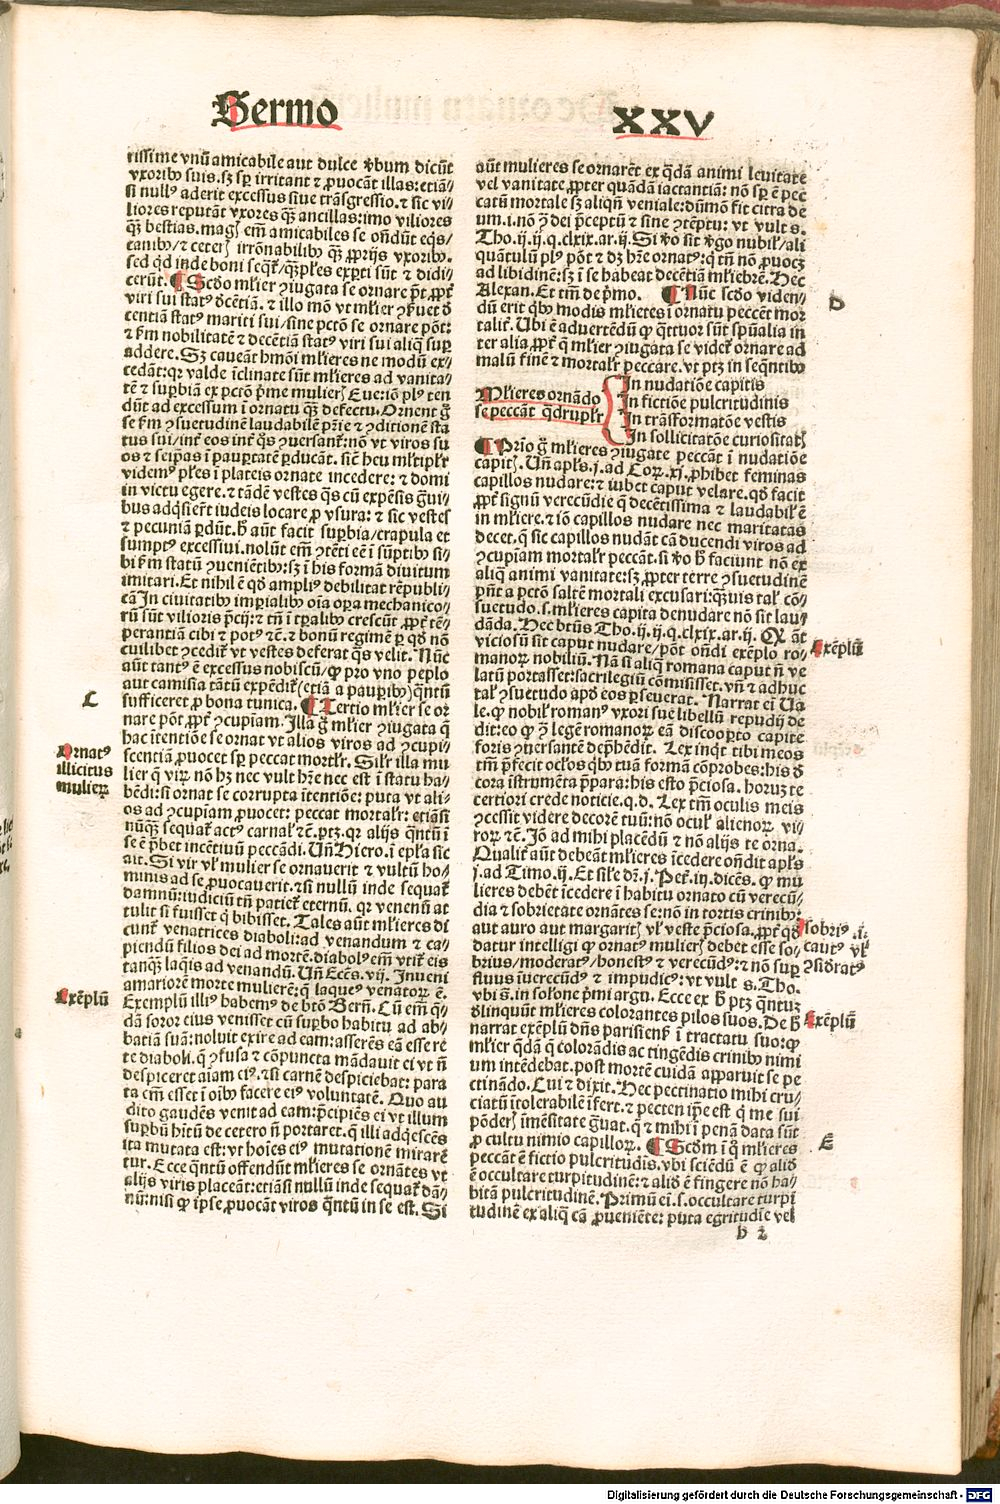 Sermo
XXV
rissime vnū amicabile aut dulce ꝟbum dicūt
vxoribꝰ suis. sꝫ sꝑ irritant ⁊ ꝓuocāt illas: etiā/
si nullꝰ aderit excessus siue trāsgressio. ⁊ sic vi/
liores reputāt vxores qꝫ ancillas: imo viliores
qꝫ bestias. magꝭ em̄ amicabiles se on̄dūt eqͥs/
canibꝰ/ ⁊ ceterꝭ irrōnabilibꝰ qꝫ ꝓprijs vxoribꝰ.
sed qͥd inde boni seqͣt̄/ qꝫ pl̄es exꝑti sūt ⁊ didi/
cerūt. ¶ Scdo ml̄ier ꝯiugata se ornare pōt ꝓpt̄
viri sui statꝰ decētiā. ⁊ illo mō vt ml̄ier ꝯẜuet d
centiā statꝰ mariti sui/ sine pctō se ornare pōt:
⁊ ẜm nobilitatē ⁊ decētiā statꝰ viri sui aliqͥ suꝑ
addere. Sꝫ caueāt hmōi ml̄ieres ne modū ex/
cedāt: qꝛ valde īclinate sūt ml̄ieres ad vanita/
tē ⁊ suꝑbiā ex pctō pͥme mulierꝭ Eue: iō plꝰ ten
dūt ad excessum ī ornatu qꝫ defectu. Ornent ḡ
se ẜm ꝯsuetudinē laudabilē pr̄ie ⁊ ꝯditionē sta
tus sui/ int̄ eos int̄ qͦs ꝯuersant̄: nō vt viros su
os ⁊ seip̄as ī pauꝑtatē ꝑducāt. sic̄ heu ml̄tiplr̄
videmꝰ pl̄es ī plateis ornate incedere: ⁊ domi
in victu egere. ⁊ tādē vestes qͣs cū expēsis gͣui/
bus adqͥsier̄t iudeis locare ꝓ vsura: ⁊ sic vestes
⁊ pecuniā ꝑdūt. h̄ aūt facit suꝑbia/ crapula et
sumptꝰ excessiui. nolūt em̄ ꝯtēti eē ī sūptibꝰ si/
bi ẜm statū ꝯueniētibꝰ: sꝫ ī his formā diuitum
imitari. Et nihil ē qͦd ampliꝰ debilitat rēpubli/
cā In ciuitatibꝰ imꝑialibꝰ oīa oꝑa mechanico/
rū sūt vilioris p̄cij: ⁊ tn̄ ī tꝑalibꝰ crescūt ꝓpt̄ tē/
perantiā cibi ⁊ potꝰ ⁊c̄. ⁊ bonū regimē ꝑ qͦd nō
cuilibet ꝯcedit̄ vt vestes deferat qͣs velit. Nūc
aūt tantꝰ ē excessus nobiscū/ ꝙ pro vno peplo
aut camisia tātū expēdit̄ (etiā a pauꝑibꝰ) qͣntū
sufficeret ꝓ bona tunica. ¶ Tertio ml̄ier se or
nare pōt ꝓpt̄ ꝯcupīam. Illa ḡ ml̄ier ꝯiugata q̄
hac ītentiōe se ornat vt alios viros ad ꝯcupi/
scentiā ꝓuocet sꝑ peccat mortlr̄. Silr̄ illa mu
lier q̄ virꝫ nō hꝫ nec vult hr̄e nec est ī statu ha/
bēdi: si ornat se corrupta ītentiōe: puta vt ali/
os ad ꝯcupīam ꝓuocet: peccat mortalr̄: etiāsi
nūqͣꝫ sequat̄ actꝰ carnal̄ ⁊c̄. ptꝫ. qꝛ alijs qͣntū ī
se ē p̄bet incētiuū peccādi. Vn̄ Hiero. ī epl̄a sic
ait. Si vir vl̄ mulier se ornauerit ⁊ vultū ho/
minis ad se ꝓuocauerit. ⁊ si nullū inde sequat̄
damnū: iudiciū tn̄ patiet̄ eternū. qꝛ venenū at
tulit si fuisset qͥ bibisset. Tales aūt ml̄ieres di
cunt̄ venatrices diaboli: ad venandum ⁊ ca/
piendū filios dei ad mortē. diabolꝰ em̄ vtit̄ eis
tanqͣꝫ laqͥs ad venandū. Vn̄ Eccs̄. vij. Inueni
amariorē morte mulierē: q̄ laqueꝰ venatorꝫ ē.
Exemplū illiꝰ habemꝰ de btō Bern̄. Cū em̄ qͥ/
dā soror eius venisset cū suꝑbo habitu ad ab/
batiā suā: noluit exire ad eam: asserēs eā esse re
te diaboli. q̄ ꝯfusa ⁊ cōpuncta mādauit ei vt n̄
despiceret aīam eiꝰ. ⁊ si carnē despiciebat: para
ta em̄ esset ī oībꝰ facere eiꝰ voluntatē. Quo au
dito gaudēs venit ad eam: p̄cipiēs ei vt illum
suꝑbū hītū de cetero n̄ portaret. q̄ illi adqͥescēs
ita mutata est: vt hoīes eiꝰ mutationē mirarē
tur. Ecce qͣntū offendūt ml̄ieres se ornātes vt
alijs viris placeāt: etiāsi nullū inde sequat̄ dā/
nū: nisi ꝙ ip̄se ꝓuocāt viros qͣntū in se est. Si
aūt mulieres se ornarēt ex qͣdā animi leuitate
vel vanitate ꝓpter quādā iactantiā: nō sꝑ ē pec
catū mortale sꝫ aliqn̄ veniale: dūmō fit citra de
um. i. nō ꝯ dei p̄ceptū ⁊ sine ꝯtēptu: vt vult s.
Tho. ij. ij. q. clxix. ar. ij. Si ꝟo sit ꝟgo nubil̄/ ali
quātulū plꝰ pōt ⁊ dꝫ hr̄e ornatꝰ: qͥ tn̄ nō ꝓuocꝫ
ad libidinē: sꝫ ī se habeat decētiā ml̄iebrē. Hec
Alexan. Et tm̄ de pͥmo. ¶ Nūc scdo viden/
dū erit qͥbꝰ modis ml̄ieres ī ornatu peccēt mor
talit̄. Vbi ē aduertēdū ꝙ qͣttuor sūt spūalia in
ter alia ꝓpt̄ q̄ ml̄ier ꝯiugata se videt̄ ornare ad
malū finē ⁊ mortalr̄ peccare. vt ptꝫ in seqͣntibꝰ
Ml̄ieres ornādo
se peccāt qͣdruplr̄
In nudatiōe capitis
In fictiōe pulcritudinis
In trāsformatōe vestis
In sollicitatōe curiositatꝭ
¶ Prīo ḡ ml̄ieres ꝯiugate peccāt ī nudatiōe
capitꝭ. Vn̄ apl̄s. j. ad Corꝫ. xj. ꝓhibet feminas
capillos nudare: ⁊ iubet caput velare. qͦd facit
ꝓpt̄ signū verecūdie q̄ decētissima ⁊ laudabil̄ ē
in ml̄iere. ⁊ iō capillos nudare nec maritatas
decet. q̄ sic capillos nudāt cā ducendi viros ad
ꝯcupīam mortalr̄ peccāt. si ꝟo h̄ faciunt nō ex
aliqͣ animi vanitate: sꝫ ꝓpter terre ꝯsuetudinē
pn̄t a pctō saltē mortali excusari: qͣꝫuis tal̄ cō/
suetudo. s. ml̄ieres capita denudare nō sit lau/
dāda. Hec btūs Tho. ij. ij. q. clxix. ar. ij. Qꝫ aūt
viciosū sit caput nudare/ pōt on̄di exēplo ro/
manorꝫ nobiliū. Nā si aliqͣ romana caput n̄ ve
latū portasset: sacrilegiū cōmisisset. vn̄ ⁊ adhuc
tal̄ ꝯsuetudo apd̄ eos ꝑseuerat. Narrat ei Va
le. ꝙ nobil̄ romanꝰ vxori sue libellū repudij de
dit: eo ꝙ ꝯ legē romanorꝫ eā discoopto capite
foris ꝯuersantē dep̄hēdit. Lex inqͥt tibi meos
tm̄ p̄fecit oclōs qͥbꝰ tuā formā cōprobes: his d
cora īstrumēta p̄para: his esto p̄ciosa. horuꝫ te
certiori crede noticie. q. d. Lex tm̄ oculis meis
ꝯcessit videre decorē tuū: nō ocul̄ alienorꝫ vi/
rorꝫ ⁊c̄. Iō ad mihi placēdū ⁊ nō alijs te orna.
Qualit̄ aūt debeāt ml̄ieres īcedere on̄dit apl̄s
j. ad Timo. ij. Et sil̄e dꝫ. j. Pet̄. iij. dicēs. ꝙ mu
lieres debēt īcedere ī habitu ornato cū verecū/
dia ⁊ sobrietate ornātes se: nō in tortis crinibꝰ:
aut auro aut margaritꝭ vl̄ veste p̄ciosa. ꝓpt̄ qͦd
datur intelligi ꝙ ornatꝰ mulierꝭ debet esse so/
brius/ moderatꝰ/ honestꝰ ⁊ verecūdꝰ: ⁊ nō suꝑ
fluus īuerecūdꝰ ⁊ impudicꝰ: vt vult s. Tho.
vbi s̄. in solōne pͥmi argu. Ecce ex h̄ ptꝫ qͣntuꝫ
delinquūt ml̄ieres colorantes pilos suos. De h̄
narrat exēplū dn̄s parisieñ. ī tractatu suorꝫ ꝙ
ml̄ier qͣdā q̄ colorādis ac tingēdis crinibꝰ nimi
um intēdebat. post mortē cuidā apparuit se pe
ctinādo. Cui ⁊ dixit. Hec pectinatio mihi cru/
ciatū ītolerabilē īfert. ⁊ pecten ip̄e est qͥ me sui
pōderꝭ īmēsitate gͣuat. q̄ ⁊ mihi ī penā data sūt
ꝓ cultu nimio capillorꝫ. ¶ Scdm ī qͦ ml̄ieres
peccāt ē fictio pulcritudīs. vbi sciēdū ē ꝙ aliud
ē occultare turpitudinē: ⁊ aliud ē fingere nō ha/
bitā pulcritudinē. Primū ei. s. occultare turpi
tudinē ex aliqͣ cā ꝓueniēte: puta egritudīe vel
b 2
C
Ornatꝰ
illicitus
mulierꝫ
Exēplū
D
Exēplū
sobriꝰ .i.
cautꝰ vl̄
ꝯsid̄ratꝰ
Exēplū
E
Digitalisierung gefördert durch die Deutsche Forschungsgemeinschaft - DFG